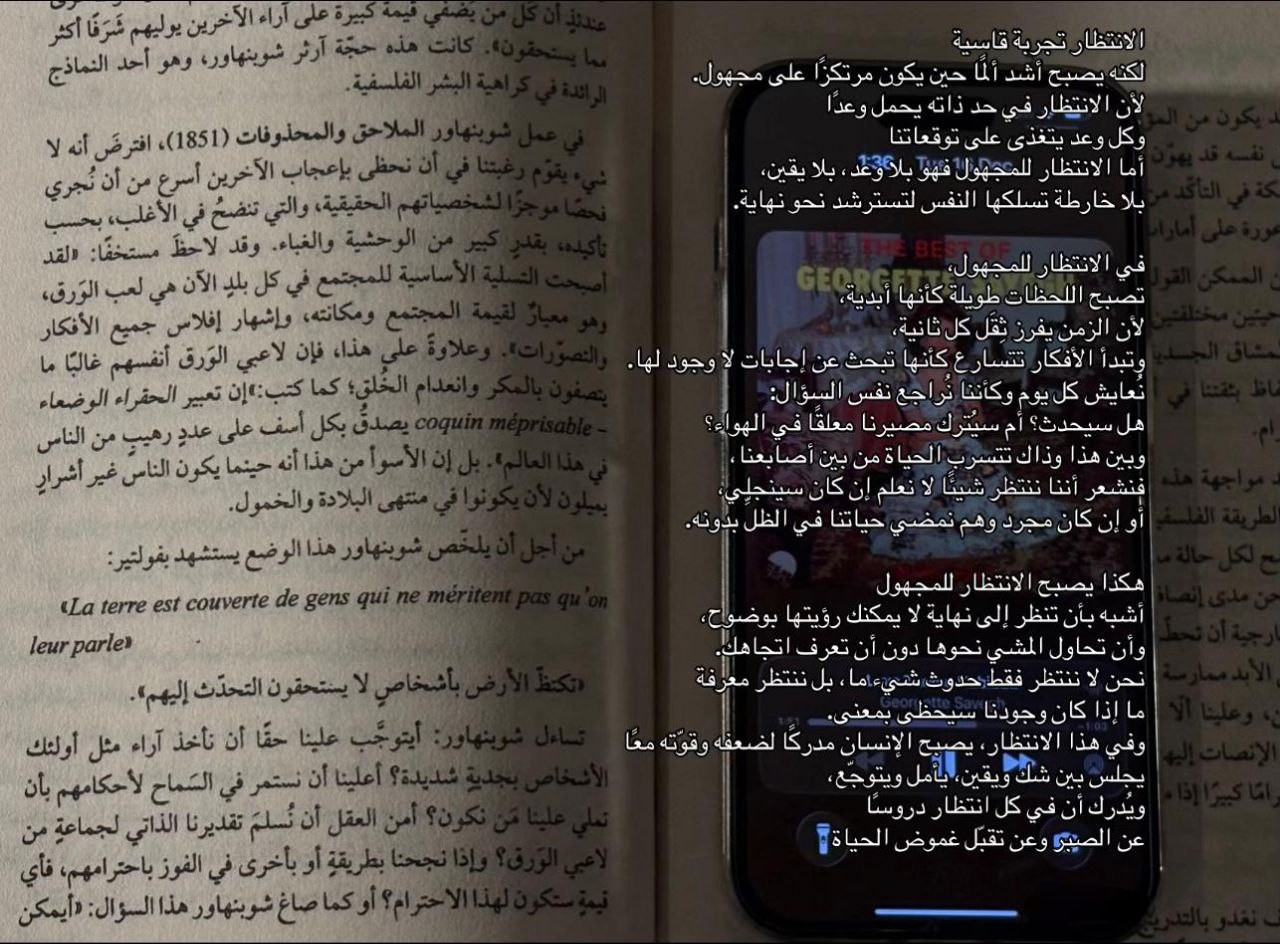 عندئذٍ أن كل من يضفي قيمة كبيرة على آراء الآخرين يوليهم شَرَفًا أكثر
مما يستحقون». كانت هذه حجّة آرثر شوبنهاور، وهو أحد النماذج
الرائدة في كراهية البشر الفلسفية.
في عمل شوبنهاور الملاحق والمحذوفات (1851)، افترضَ أنه لا
شيء يقوّم رغبتنا في أن نحظى بإعجاب الآخرين أسرع من أن نُجري
فحصًا موجزًا لشخصياتهم الحقيقية، والتي تنضحُ في الأغلب، بحسب
تأكيده، بقدرٍ كبير من الوحشية والغباء. وقد لاحظَ مستخفًا: «لقد
أصبحت التسلية الأساسية للمجتمع في كل بلدٍ الآن هي لعب الوَرق،
وهو معيارٌ لقيمة المجتمع ومكانته، وإشهار إفلاس جميع الأفكار
والتصوّرات». وعلاوةً على هذا، فإن لاعبي الوَرق أنفسهم غالبًا ما
يتصفون بالمكر وانعدام الخُلق؛ كما كتب:«إن تعبير الحقراء الوضعاء
– coquin méprisable يصدقُ بكل أسف على عددٍ رهيبٍ من الناس
في هذا العالم». بل إن الأسوأ من هذا أنه حينما يكون الناس غير أشرارٍ
يميلون لأن يكونوا في منتهى البلادة والخمول.
من أجل أن يلخّص شوبنهاور هذا الوضع يستشهد بفولتير:
«La terre est couverte de gens qui ne méritent pas qu'on
leur parle»
«تكتظّ الأرض بأشخاصٍ لا يستحقون التحدّث إليهم».
تساءل شوبنهاور: أيتوجَّب علينا حقًا أن نأخذ آراء مثل أولئك
الأشخاص بجديةٍ شديدة؟ أعلينا أن نستمر في السَماح لأحكامهم بأن
تملي علينا مَن نكون؟ أمن العقل أن نُسلمَ تقديرنا الذاتي لجماعةٍ من
لاعبي الوَرق؟ وإذا نجحنا بطريقةٍ أو بأخرى في الفوز باحترامهم، فأي
قيمةٍ ستكون لهذا الاحترام؟ أو كما صاغ شوبنهاور هذا السؤال: «أيمكن
الانتظار تجربة قاسية
لكنه يصبح أشد ألمًا حين يكون مرتكزًا على مجهول.
لأن الانتظار في حد ذاته يحمل وعدًا
وكل وعد يتغذى على توقعاتنا
أما الانتظار للمجهول فهو بلا وعد، بلا يقين،
بلا خارطة تسلكها النفس لتسترشد نحو نهاية.
في الانتظار للمجهول،
تصبح اللحظات طويلة كأنها أبدية،
لأن الزمن يفرز ثِقَل كل ثانية،
وتبدأ الأفكار تتسارع كأنها تبحث عن إجابات لا وجود لها.
نُعايش كل يوم وكأننا نُراجع نفس السؤال:
هل سيحدث؟ أم سيُترك مصيرنا معلقًا في الهواء؟
وبين هذا وذاك تتسرب الحياة من بين أصابعنا،
فنشعر أننا ننتظر شيئًا لا نعلم إن كان سينجلي،
أو إن كان مجرد وهم نمضي حياتنا في الظل بدونه.
هكذا يصبح الانتظار للمجهول
أشبه بأن تنظر إلى نهاية لا يمكنك رؤيتها بوضوح،
وأن تحاول المشي نحوها دون أن تعرف اتجاهك.
نحن لا ننتظر فقط حدوث شيء ما، بل ننتظر معرفة
ما إذا كان وجودنا سيحظى بمعنى.
وفي هذا الانتظار، يصبح الإنسان مدركًا لضعفه وقوّته معًا
يجلس بين شك ويقين، يأمل ويتوجّع،
ويُدرك أن في كل انتظار دروسًا
عن الصبر وعن تقبّل غموض الحياة
1:36
THE BEST OF
GEORGETTE
Georgette
1:51
-1:03